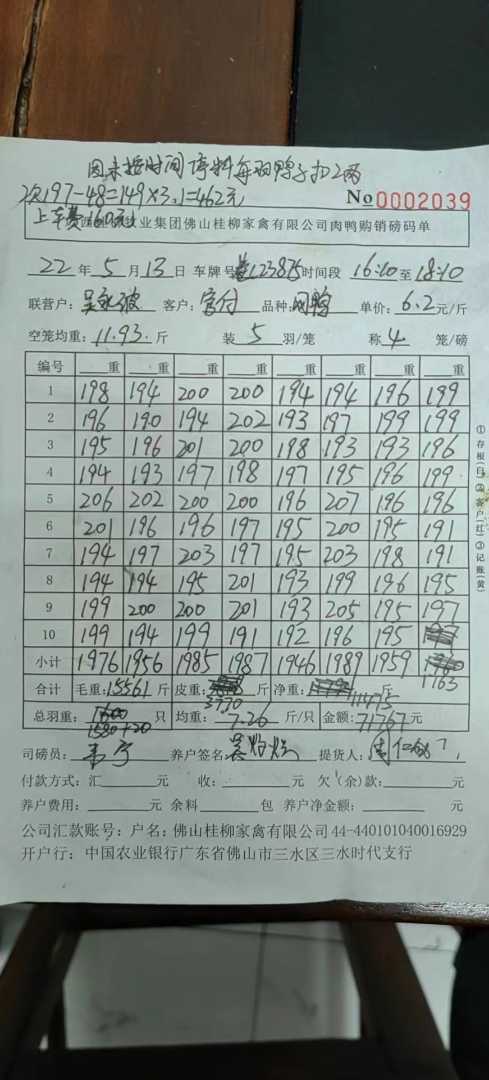 因未按时间停料每羽鸭子扣2两
次197-48=149×3.1=462元
No 0002039
上车费160元
牧业集团佛山桂柳家禽有限公司肉鸭购销磅码单
22 年 5 月 13 日 车牌号 123875 时间段 16:10 至 18:10
联营户: 客户: 品种: 肉鸭 单价: 6.2 元/斤
空笼均重: 11.93 斤 装 5 羽/笼 称 4 笼/磅
编号 重 重 重 重 重 重 重 重
1 198 194 200 200 194 194 196 199
2 196 190 194 202 193 197 199 199
3 195 196 201 200 198 193 193 196
4 194 193 197 198 197 195 196 199
5 206 202 200 200 196 207 196 196
6 201 196 196 197 195 200 195 191
7 194 197 203 197 195 203 198 191
8 194 194 195 201 193 199 196 195
9 199 200 200 201 193 205 195 197
10 199 194 199 191 192 196 195
小计 1976 1956 1985 1987 1946 1989 1959 1763
合计 毛重: 15561 斤 皮重: 3770 斤 净重: 11475 斤
总羽重: 1600 只 均重: 7.26 斤/只 金额: 71767 元
1580+20
司磅员: 养户签名: 提货人:
付款方式: 汇 元 收: 元 欠(余)款: 元
养户费用: 元 余料 包 养户净金额: 元
公司汇款账号: 户名: 佛山桂柳家禽有限公司 44-440101040016929
开户行: 中国农业银行广东省佛山市三水区三水时代支行
①存根(白)②客户(红)③记账(黄)